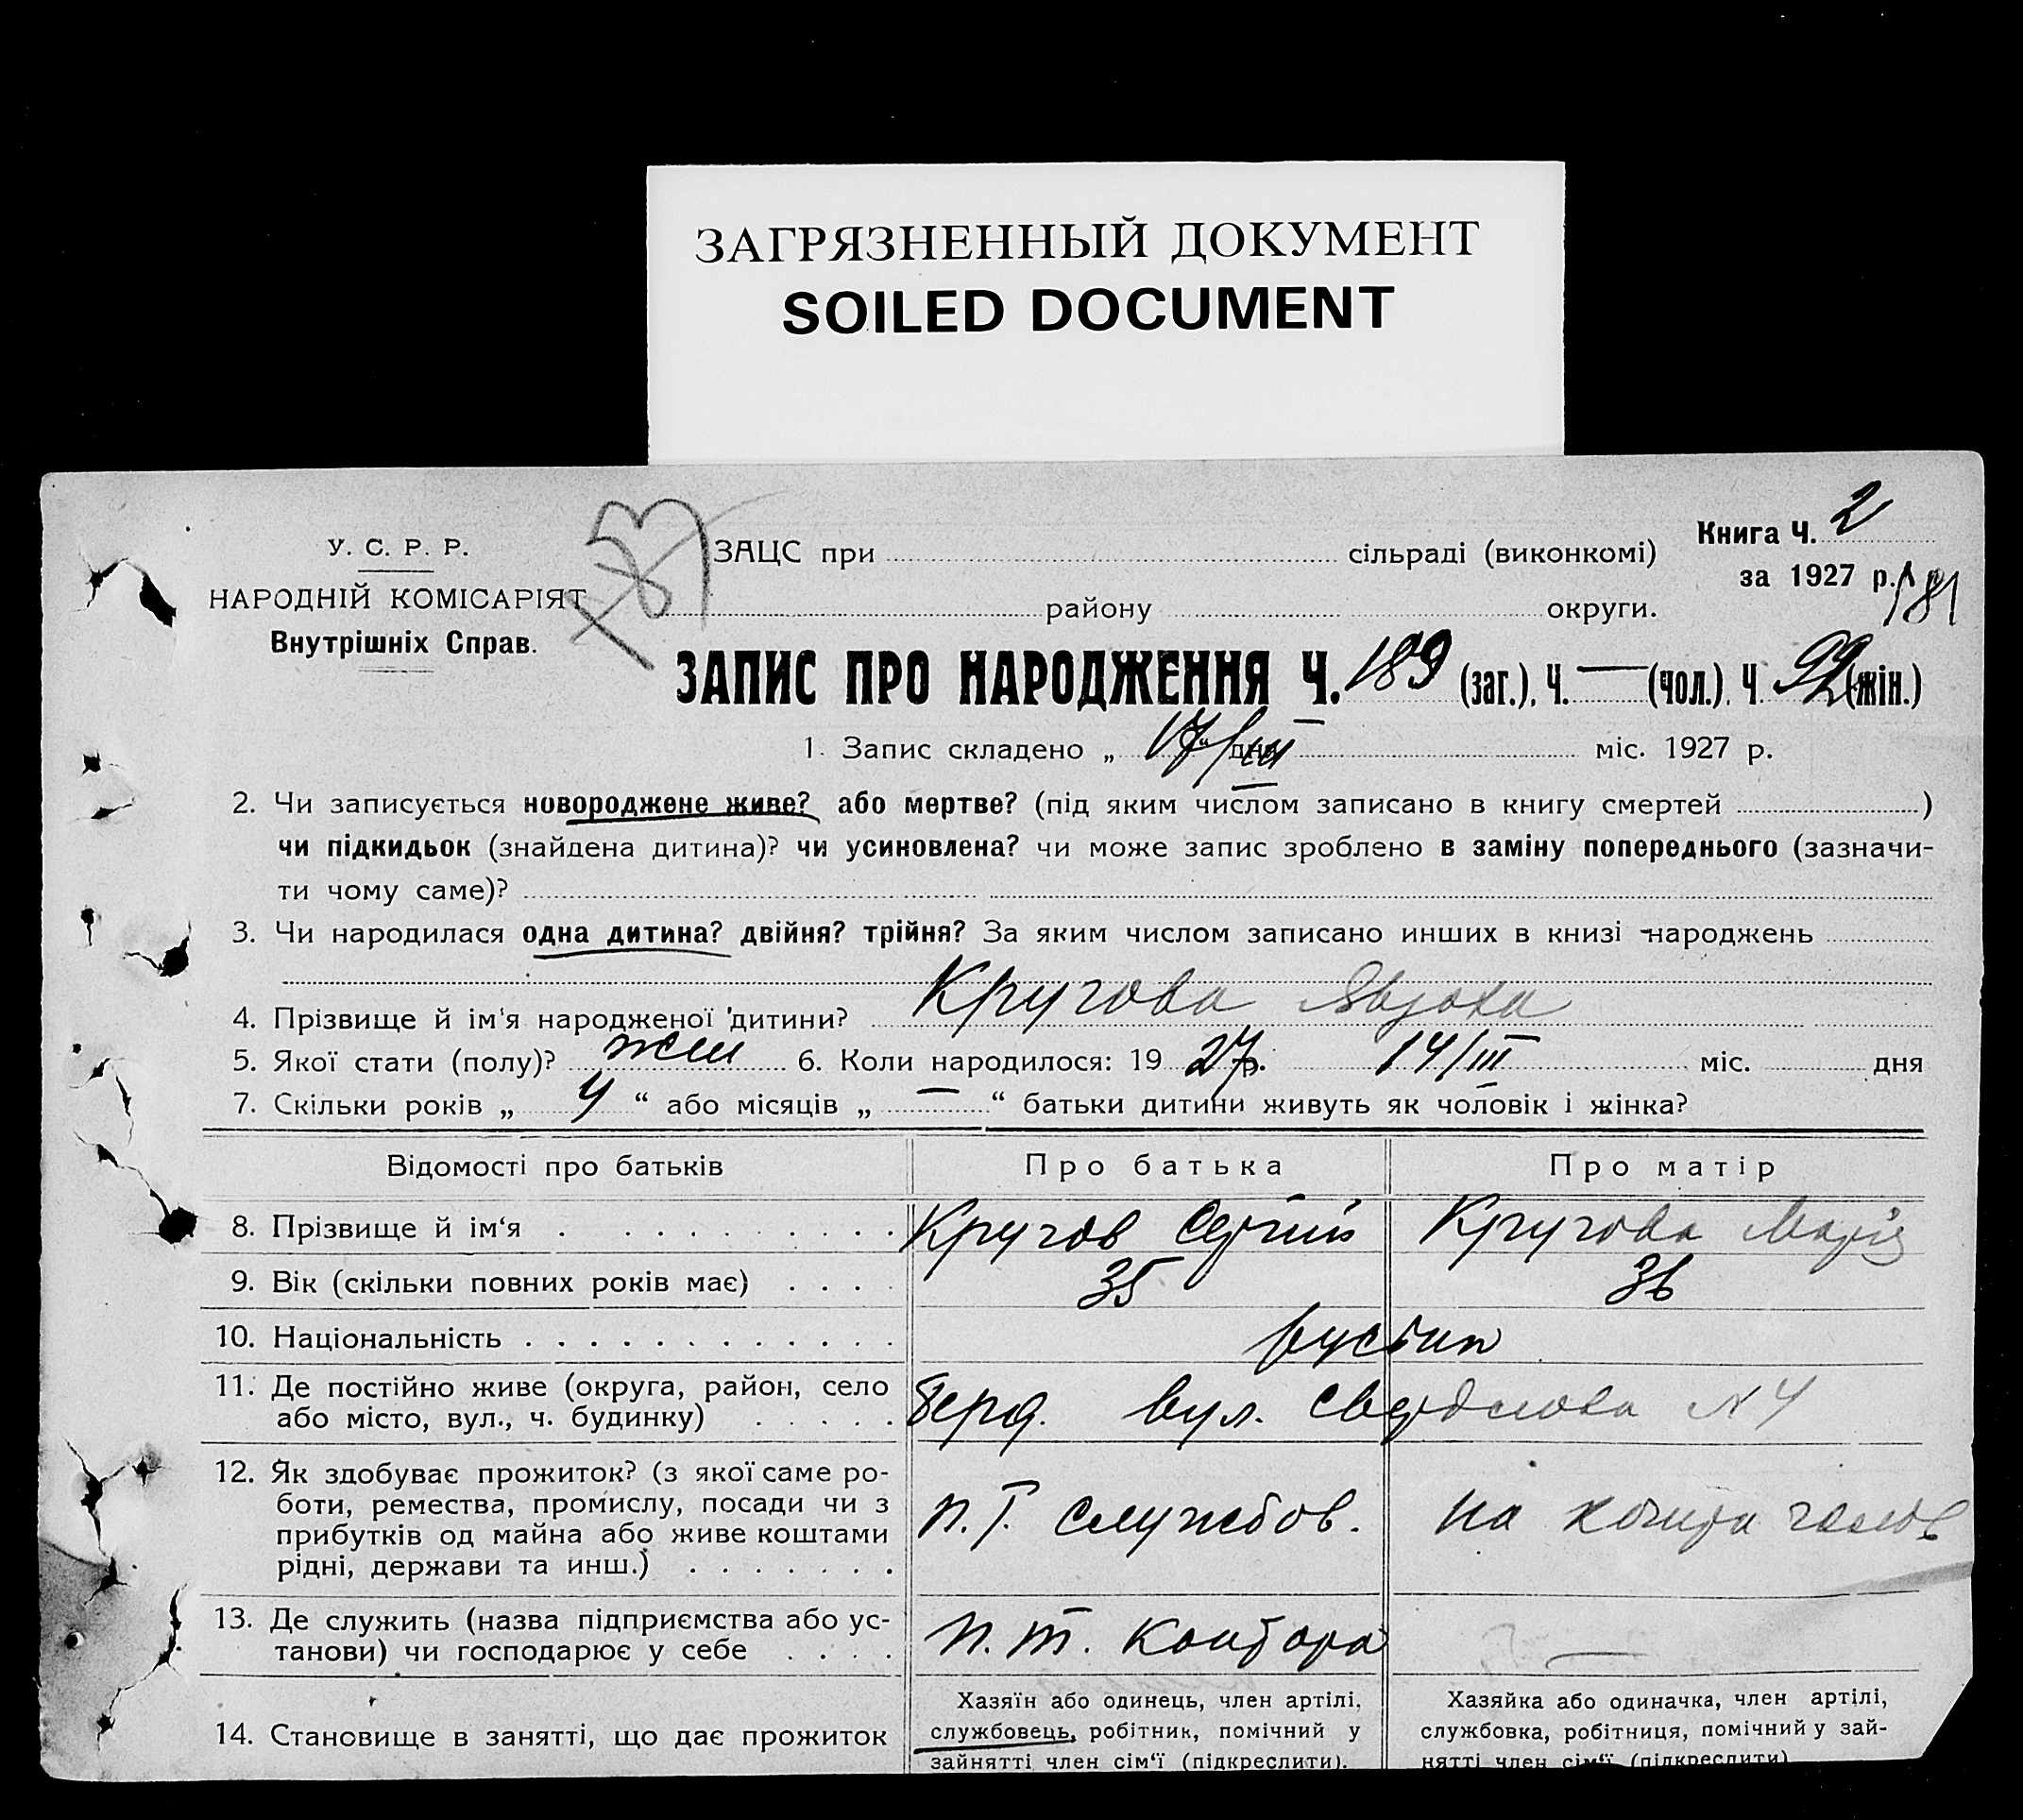 ЗАГРЯЗНЕННЫЙ ДОКУМЕНТ
SOILED DOCUMENT
Книга Ч. 2
У. С. Р. Р.
ЗАЦС при сільраді (виконкомі)
за 1927 р. 181
НАРОДНІЙ КОМІСАРІЯТ
району округи.
Внутрішніх Справ.
ЗАПИС ПРО НАРОДЖЕННЯ Ч. 189 (заг.), Ч. — (чол.), Ч. 92 (жін.)
1. Запис складено „ 17/III “ дня міс. 1927 р.
2. Чи записується новороджене живе? або мертве? (під яким числом записано в книгу смертей )
чи підкидьок (знайдена дитина)? чи усиновлена? чи може запис зроблено в заміну попереднього (зазначи-
ти чому саме)?
3. Чи народилася одна дитина? двійня? трійня? За яким числом записано инших в книзі народжень
4. Прізвище й ім'я народженої дитини? Кругова
5. Якої стати (полу)? жін 6. Коли народилося: 19 27 р. 14/III міс. дня
7. Скільки років „ 4 “ або місяців „ — “ батьки дитини живуть як чоловік і жінка?
Відомості про батьків Про батька Про матір
8. Прізвище й ім‘я Кругов Сергій Кругова Марія
9. Вік (скільки повних років має) 35 36
10. Національність
11. Де постійно живе (округа, район, село Берд. вул. Свердлова N 4
або місто, вул., ч. будинку)
12. Як здобуває прожиток? (з якої саме ро-
боти, ремества, промислу, посади чи з П.Т. службов. на
прибутків од майна або живе коштами
рідні, держави та инш.)
13. Де служить (назва підприємства або ус- П.Т. контора —
танови) чи господарює у себе
Хазяїн або одинець, член артілі, Хазяйка або одиначка, член артілі,
14. Становище в занятті, що дає прожиток службовець, робітник, помічний у службовка, робітниця, помічний у зай-
зайнятті член сім‘ї (підкреслити). нятті член сім‘ї (підкреслити)